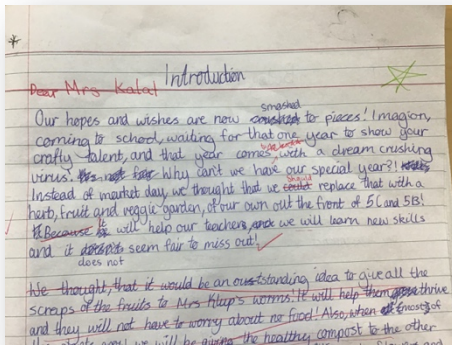 Introduction
Dear Mrs Kalal
smashed
Our hopes and wishes are now crushed to pieces! Imagion,
coming to school, waiting for that one year to show your
crafty talent, and that year comes, with a dream crushing
virus! Its not fair Why can't we have our special year?!
Instead of market day, we thought that we could replace that with a
herb, fruit and veggie garden, of our own out the front of 5L and 5B!
Because it will help our teachers, and we will learn new skills
and it doesn't seem fair to miss out!
does not
We thought, that it would be an outstanding idea to give all the
scraps of the fruits to Mrs Klap's worms! It will help them thrive
and they will not have to worry about no food! Also, when most of
we will be giving the healthy compost to the other